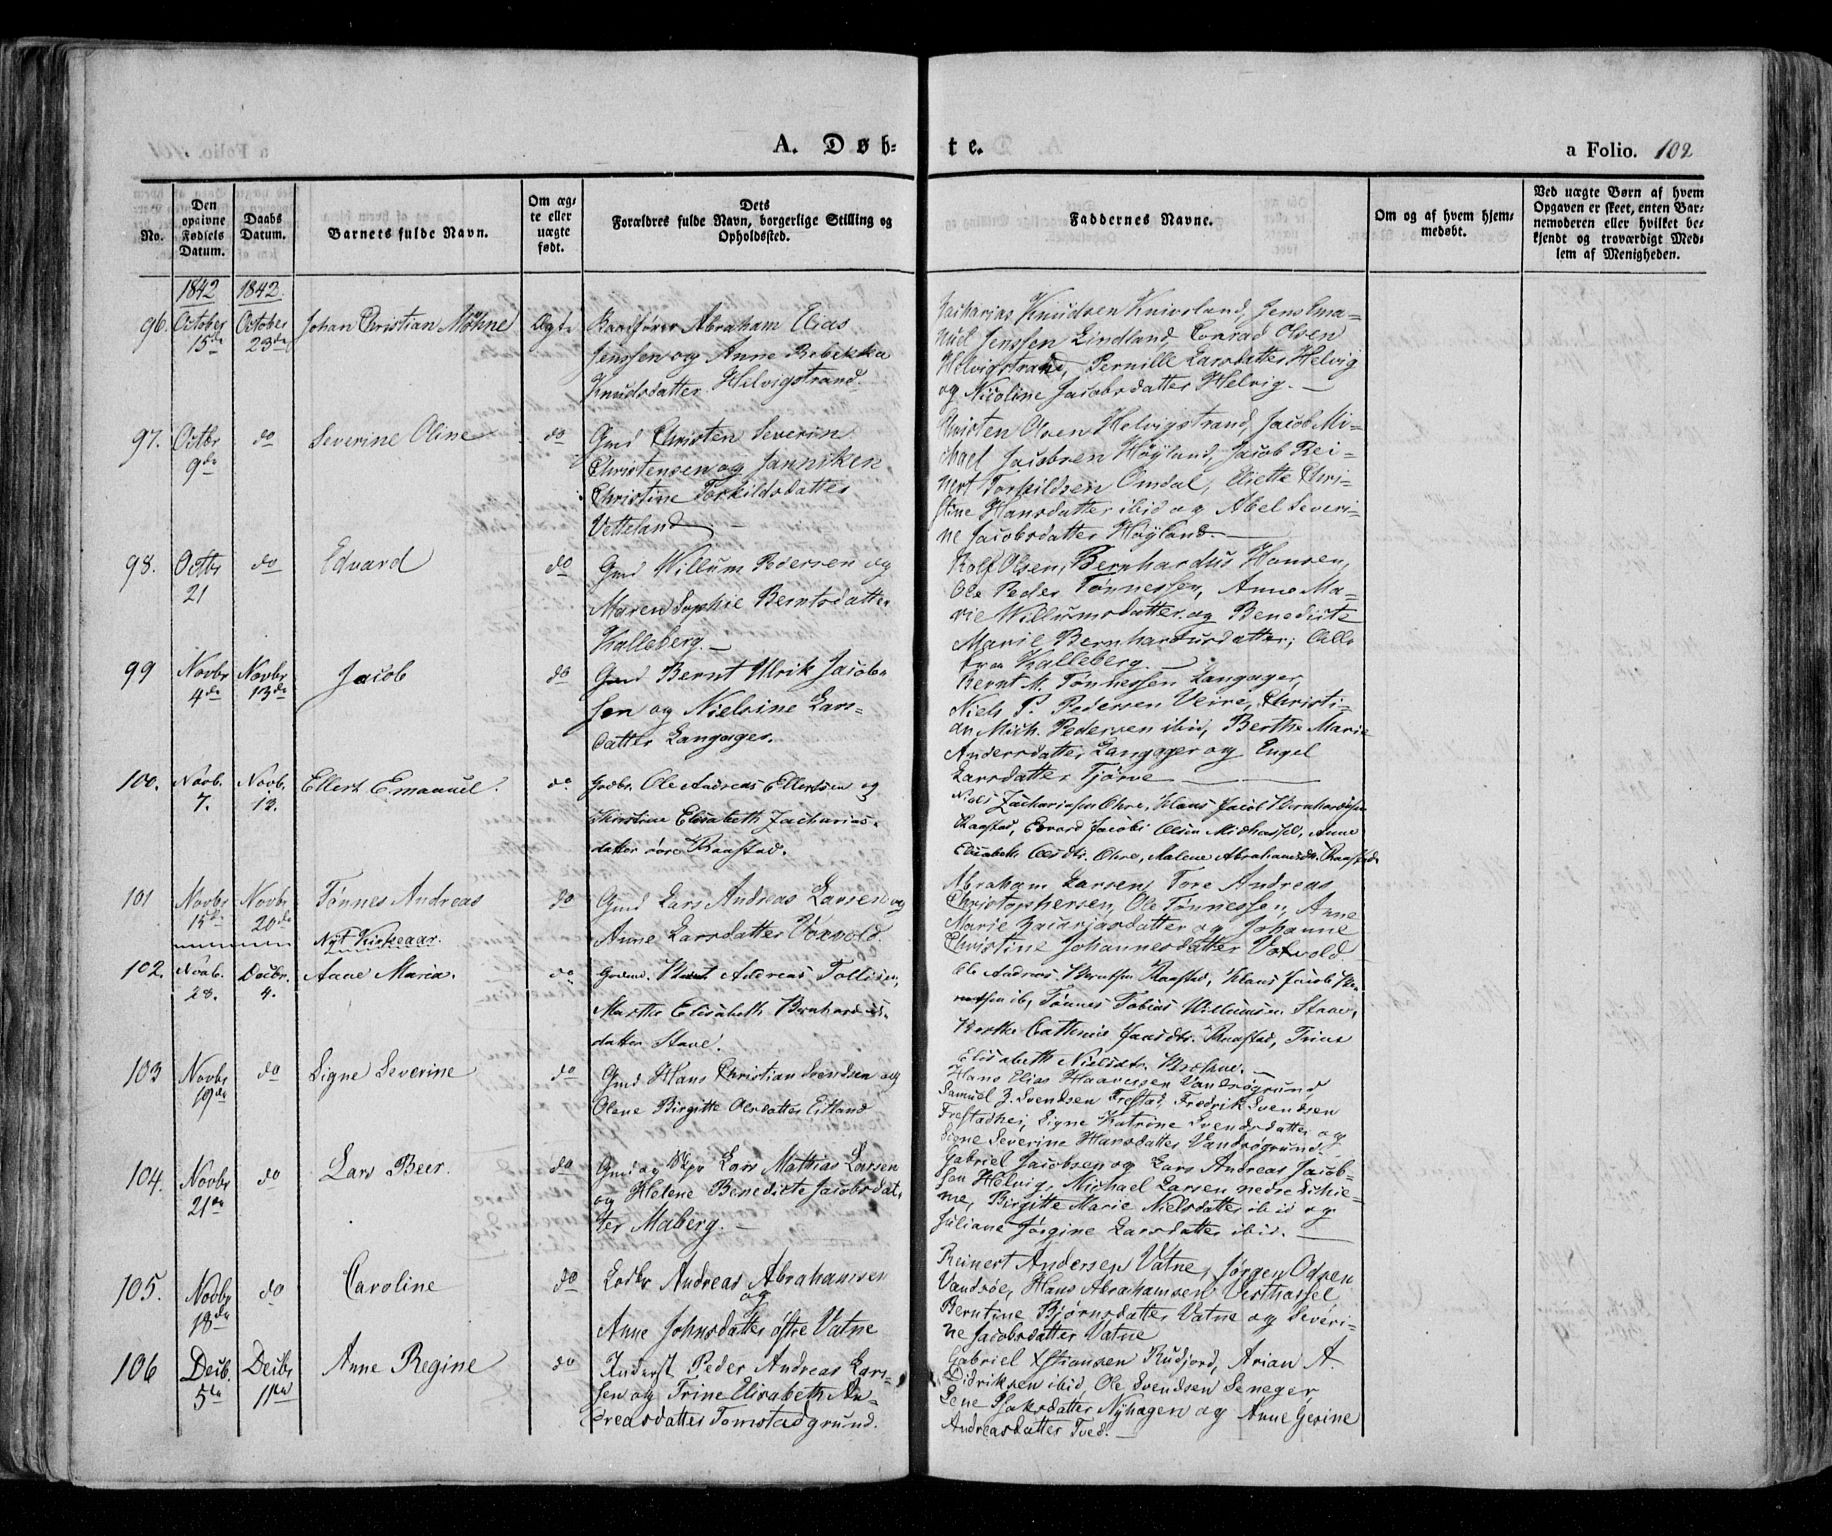 A. Døb- te.
a Folio. 102
No.
Den
opgivne
Fødsels
Datum.
Daabs
Datum.
Barnets fulde Navn.
Om æg-
te eller
uægte
født.
Dets
Forældres fulde Navn, borgerlige Stilling og
Opholdssted.
Faddernes Navne.
Om og af hvem hjem-
medøbt.
Ved uægte Børn af hvem
Opgaven er skeet, enten Bar-
nemoderen eller hvilket be-
kjendt og troværdigt Med-
lem af Menigheden.
1842 1842
96. October 15de October 23de Johan Christian Møhne Ægte Abraham Elias
Jenssen og Anne Rebekka
Knudsdatter Helvigstrand.
Zacharias Knudsen Knivsland, Jens Ema-
nuel Jenssen Lindland, Conrad Olsen
Helvigstrand, Pernille Larsdatter Helvig
og Nicoline Jacobsdatter Helvig.
97. Octbr 9de do Severine Oline do Gmd Christen Severin
Christensen og Janniken
Christine Torkildsdatter
Vetteland
Christen Olsen Helvigstrand, Jacob Mi-
chael Jacobsen Høyland, Jacob Rei-
nert Torkildsen Omdal, Eliette Chri-
stine Hansdatter ibid og Abel Severi-
ne Jacobsdatter Høyland.
98. Octbr 21 do Edvard do Gmd Willum Pedersen og
Maren Sophie Berntsdatter
Kalleberg.
Rolf Olsen, Bernhardus Hansen,
Ole Peder Tønnessen, Anne Ma-
rie Willumsdatter og Benedicte
Marie Bernhardusdatter, Alle
fra Kalleberg.
99 Novbr 4de Novbr 13de Jacob do Gmd Bernt Ulrik Jacob-
sen og Nielsine Lars-
datter Langager.
Bernt M. Tønnessen Langager,
Niels P. Pedersen Veire, Christi-
an Mich. Pedersen ibid, Berthe Marie
Andersdatter Langager og Engel
Larsdatter Tjørve
100. Novb. 7. Novb. 13. Ellert Emanuel. do Gdbr. Ole Andreas Ellertsen og
Christine Elisabeth Zacharias-
datter øvre Raastad.
Niels Zachariasen Ohre, Hans Jacob Bernhardsen
Raastad, Edvard Jacobi Olsen Midhassel, Anne
Elisabeth Olsdtr. Ohre, Malene Abrahamsdtr. Raastad.
101 Novbr 15de Novbr 20de Tønnes Andreas do Gmd Lars Andreas Larsen og
Anne Larsdatter Votvold.
Abraham Larsen, Tore Andreas
Christophersen, Ole Tønnessen, Anne
Marie Zacariasdatter og Johanne
Christine Johannesdatter Votvold
Nyt Kirkeaar.
102. Novb. 28. Decbr. 4. Anne Maria. do Bernt Andreas Tollisen,
Marthe Elisabeth Bernhardus-
datter Stave.
Ole Andreas Berntsen Raastad, Hans Jacob Be-
rntsen ib, Tønnes Tobias Willumsen Stave,
Berthe Cathrine Raastad, Trine
Elisabeth
103 Novbr 19de do Signe Severine do Gmd Hans Christian Svendsen og
Olene Birgitte Olsdatter Eitland
Hans Elias Haaversen Vandsøgrund,
Samuel Z. Svendsen Frestad, Fredrik Svendsen
Frestadhei, Signe Katrine Svendsdatter og
Signe Severine Hansdatter Vandsøgrund.
104. Novbr 21de do Lars Beer. do Gmd og Lars Mathias Larsen
og Helene Benedicte Jacobsdat-
ter Maberg.
Gabriel Jacobsen og Lars Andreas Jacob-
sen Helvig, Michael Larsen nedre Skie-
me, Birgitte Marie Nielsdatter ibid og
Juliane Jørgine Larsdatter ibid.
105. Novbr 18de do Caroline do Andreas Abrahamsen
og
Anne Johnsdatter østre Vatne
Reinert Andersen Vatne, Jørgen Odsen
Vandsøe, Hans Abrahamsen Vesthassel
Berntine Bjørnsdatter Vatne og Severi-
ne Jacobsdatter Vatne
106 Decb. 5te Decbr 11te Anne Regine do Inderst Peder Andreas Lars-
sen og Trine Elisabeth An-
dreasdatter Tomstadgrund.
Gabriel Xstiansen Rudjord, Arian A.
Didriksen ibid, Ole Svendsen Seneger,
Lene Isaksdatter Nyhagen og Anne Gesine
Andreasdatter Tved.